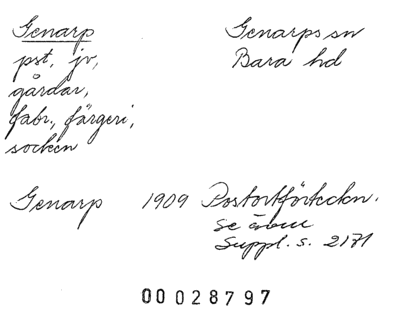 Genarp
pst, jv,
gårdar,
fabr., färgeri,
socken
Genarps sn
Bara hd
Genarp 1909 Postortförteckn.
se även
Suppl. s. 2171
00028797